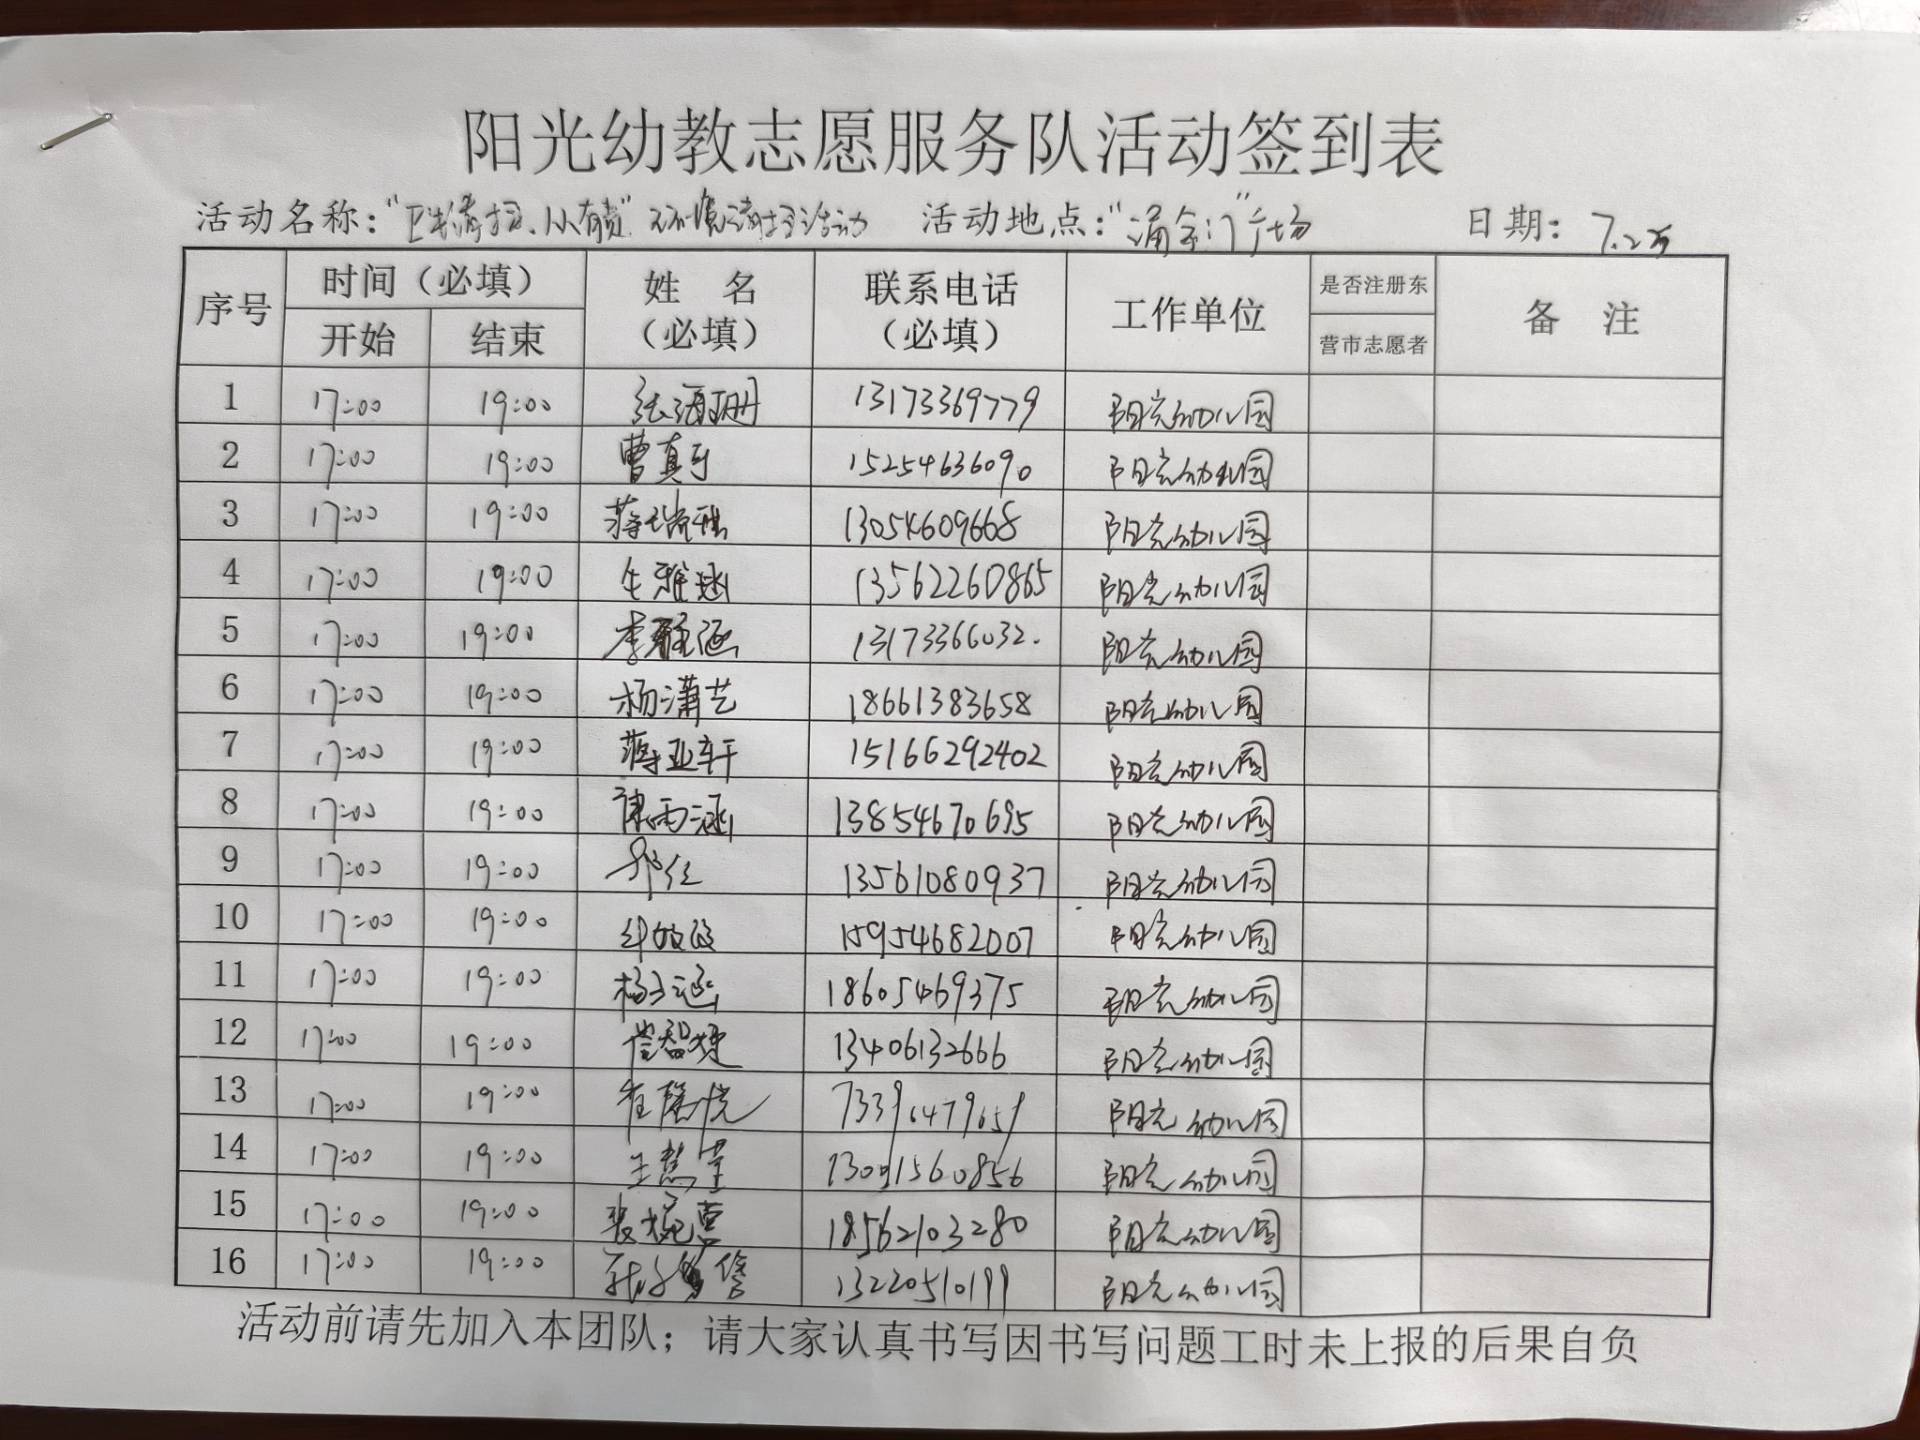 阳光幼教志愿服务队活动签到表
活动名称：“卫生清扫、小有责”环境清扫活动 活动地点：“涌金门”广场 日期：7.25
序号 时间（必填） 姓 名（必填） 联系电话（必填） 工作单位 是否注册东营市志愿者 备 注
开始 结束
1 17:00 19:00 张海珊 13173369779 阳光幼儿园
2 17:00 19:00 曹真 15254636090 阳光幼儿园
3 17:00 19:00 蒋瑞 13054609668 阳光幼儿园
4 17:00 19:00 牛雅涵 13562260865 阳光幼儿园
5 17:00 19:00 李雅涵 13173366032. 阳光幼儿园
6 17:00 19:00 杨潇艺 18661383658 阳光幼儿园
7 17:00 19:00 蒋亚轩 15166292402 阳光幼儿园
8 17:00 19:00 陈雨涵 13854670695 阳光幼儿园
9 17:00 19:00 13561080937 阳光幼儿园
10 17:00 19:00 15954682007 阳光幼儿园
11 17:00 19:00 杨子涵 18605469375 阳光幼儿园
12 17:00 19:00 13406132666 阳光幼儿园
13 17:00 19:00 崔 阳光幼儿园
14 17:00 19:00 王慧莹 13091560856 阳光幼儿园
15 17:00 19:00 18562103280 阳光幼儿园
16 17:00 19:00 13220510199 阳光幼儿园
活动前请先加入本团队；请大家认真书写因书写问题工时未上报的后果自负